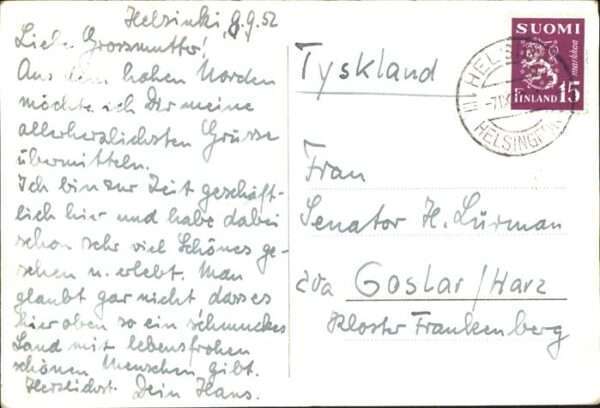 Helsinki, 8.9.52
Liebe Grossmutter!
Aus dem hohen Norden
möchte ich Dir meine
allerherzlichsten Grüsse
übermitteln.
Ich bin zur Zeit geschäft-
lich hier und habe dabei
schon sehr viel Schönes ge-
sehen u. erlebt. Man
glaubt gar nicht dass es
hier oben so ein schmuckes
Land mit lebensfrohen
schönen Menschen gibt.
Herzlichst Dein Hans.
SUOMI
markkaa
FINLAND 15
HELSINGFORS
Tyskland
Frau
Senator H. Lürman
Goslar/Harz
Kloster Frankenberg